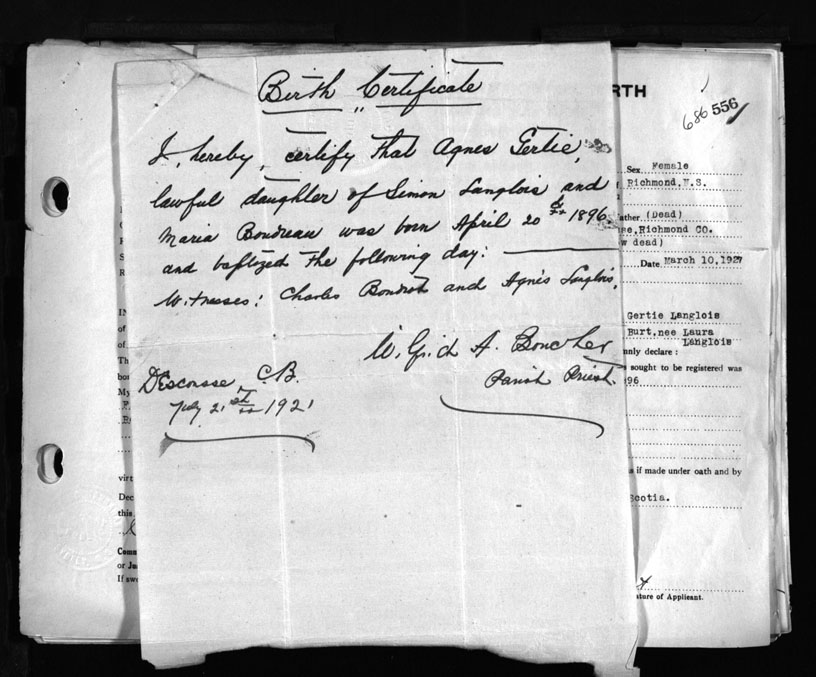 Birth Certificate
"
I, hereby, certify that Agnes Gertie,
lawful daughter of Simon Langlois and
Maria Boudreau was born April 20th 1896.
and baptized the following day:
Witnesses: Charles and Agnes Langlois.
A. Boucher
Parish Priest.
Descousse C.B.
July 21st 1921
RTH
686 556
Sex Female
Richmond, N.S.
ather. (Dead)
se, Richmond CO.
w dead)
Date March 10, 1927
Gertie Langlois
Burt, nee Laura
Langlois
nly declare :
sought to be registered was
96
s if made under oath and by
Scotia.
ature of Applicant.
IN
of
of
Th
bo
My
virt
Dec
this
Comm
or Ju
If swe